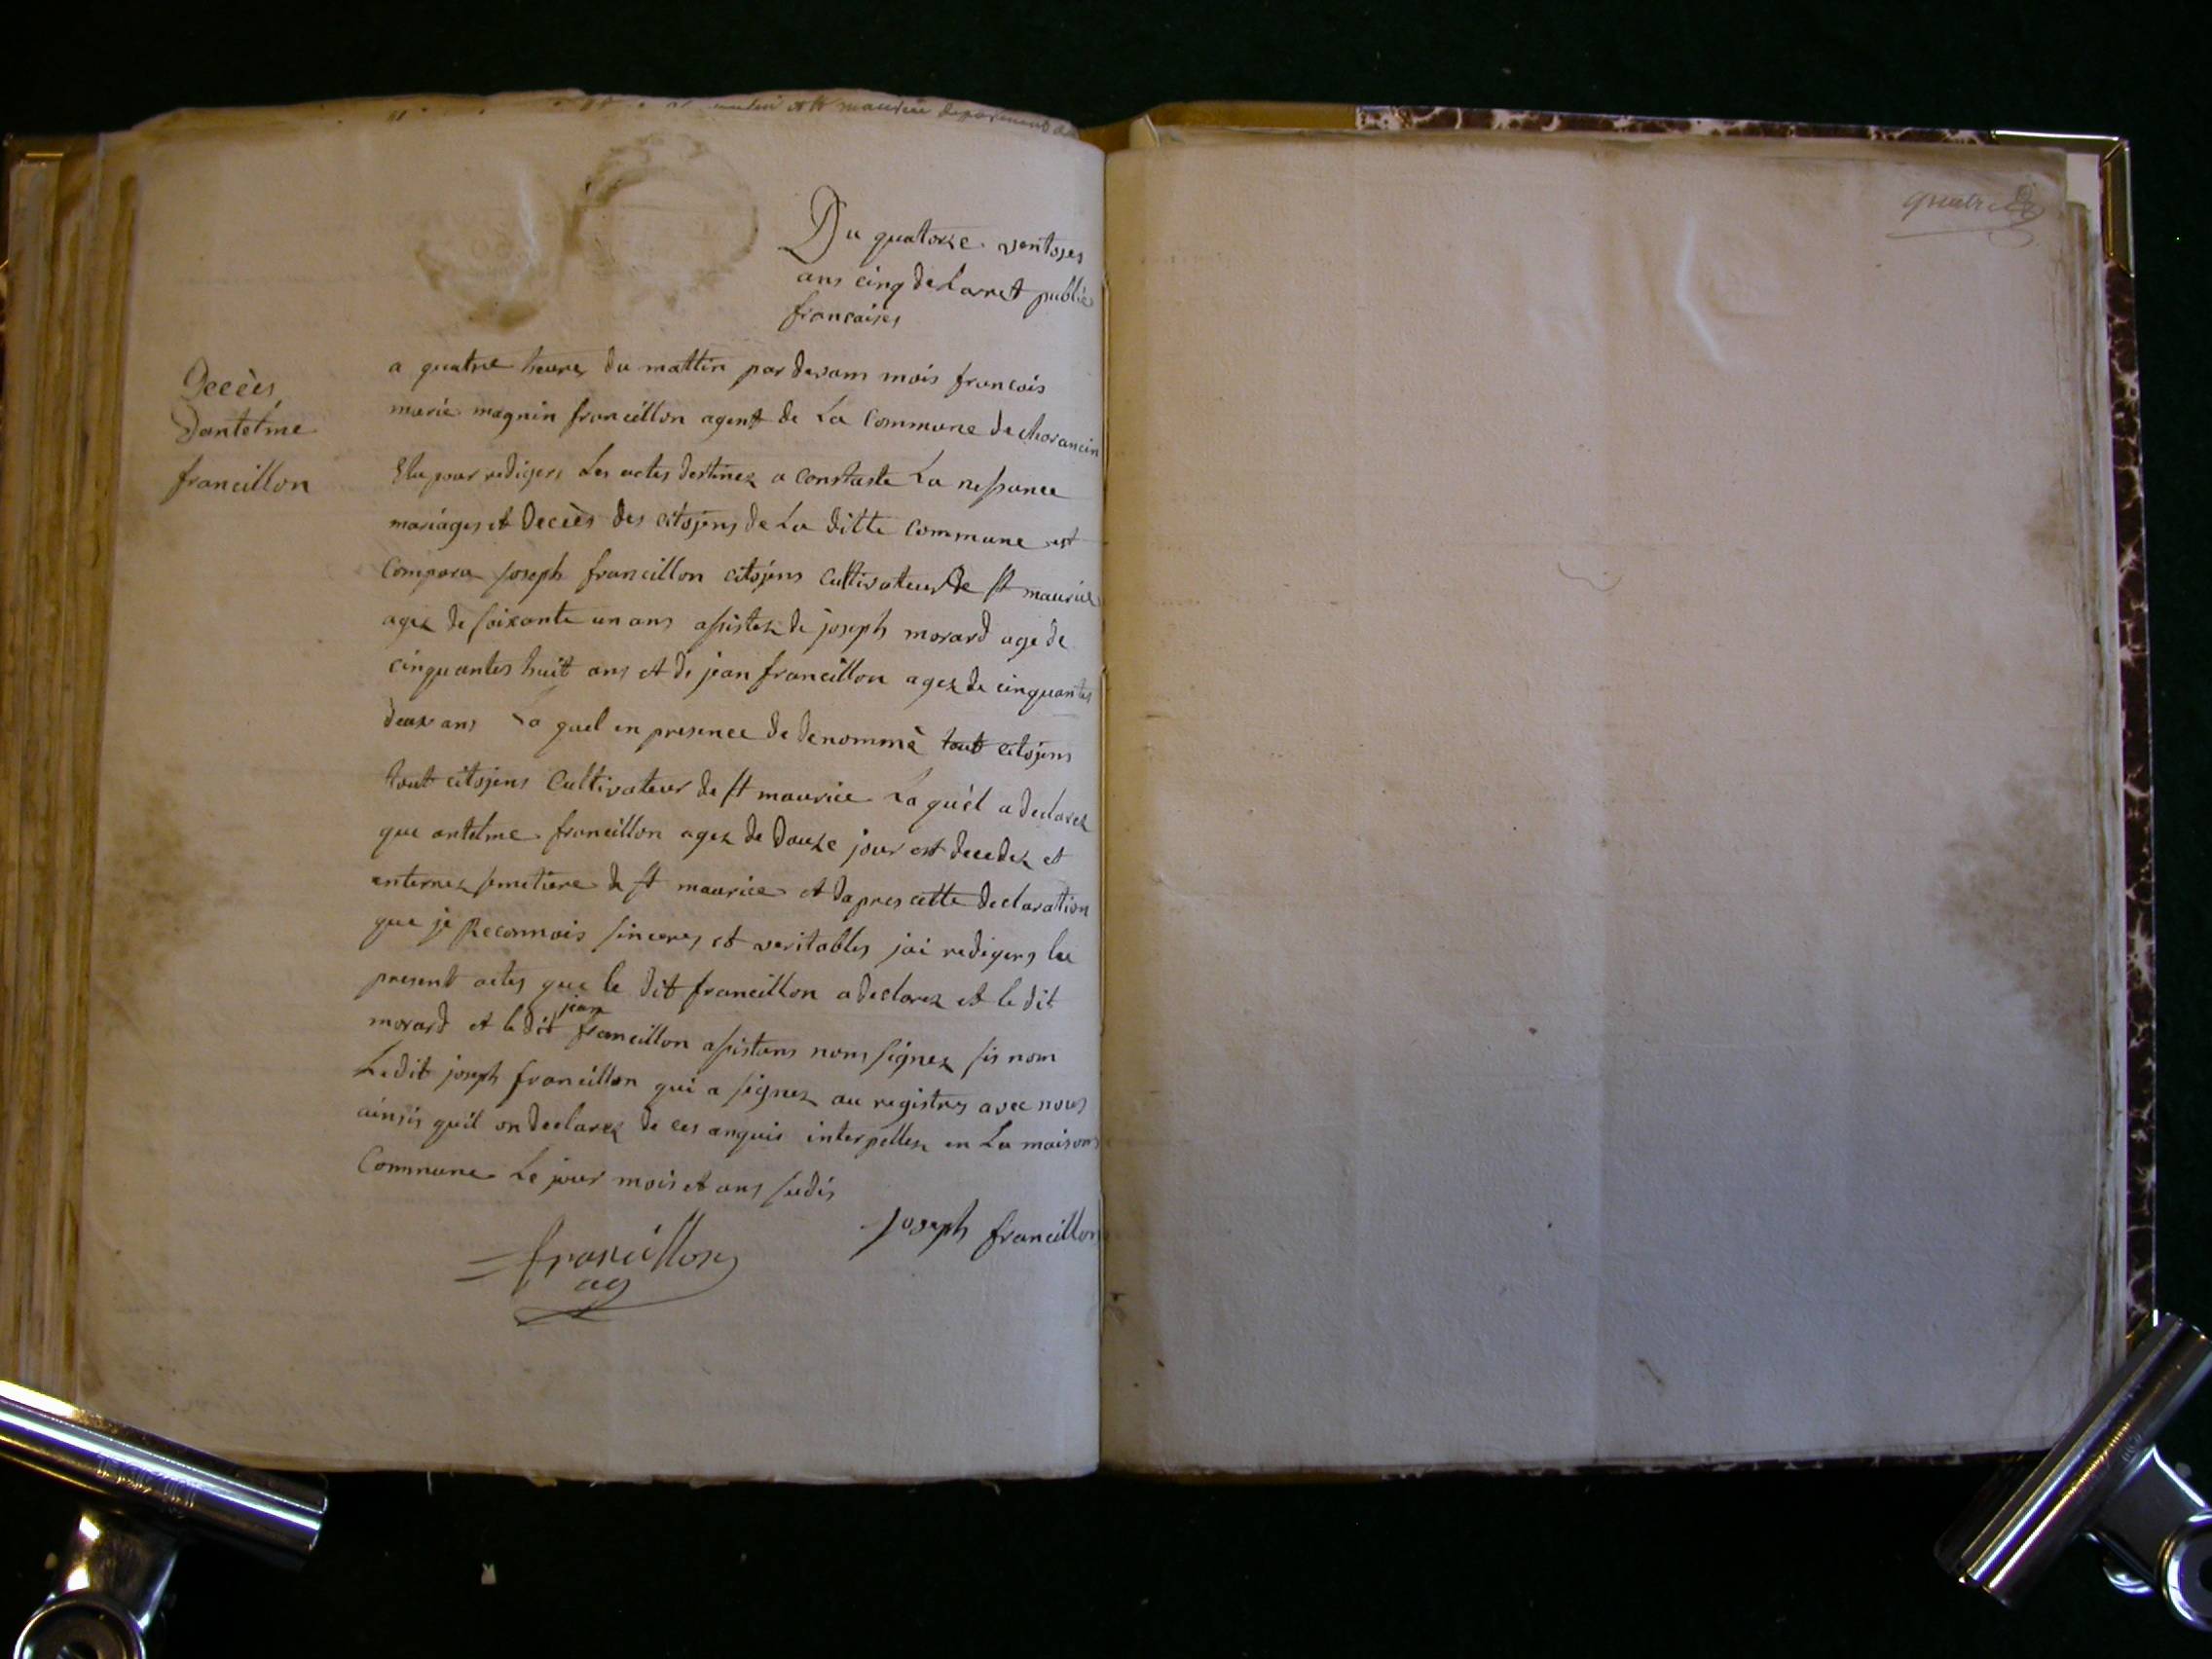 maurice
Du quatorze ventoses
ans cinq de Laret public
francaises
Decèes
Dantelme
francillon
a quatre heures du mattin par devam mois francois
marie magnin francillon agent de La Commune de charancin
Elu pour redigers Les actes destinez a constaste La nessance
mariages et Decèès des citojens de La ditte Commune est
Compara joseph francillon citojens cultivateur De st maurice
agez de soixante un ans assistez de joseph morard age de
cinquantes huit ans et de jean francillon agez de cinquantes
deux ans La quel en presence de denommè tout citojens
tout citojens Cultivateur de st maurice La quèl a declarez
que antelme francillon agez de Douze jour est decedez et
enternez semetiere de st maurice et dapres cette declaration
que je Reconnois sinceres et veritables jai redigers le
present actes que le dit francillon a declarez et le dit
morard et le dit jean francillon assistans nons signez sis nom
Ledit joseph francillon qui a signez au registres avec nous
ainsis qu'il on declarez de ces anquis interpellez en La maisons
Commune Le jour mois et ans sudis
joseph francillon
francillon
ag